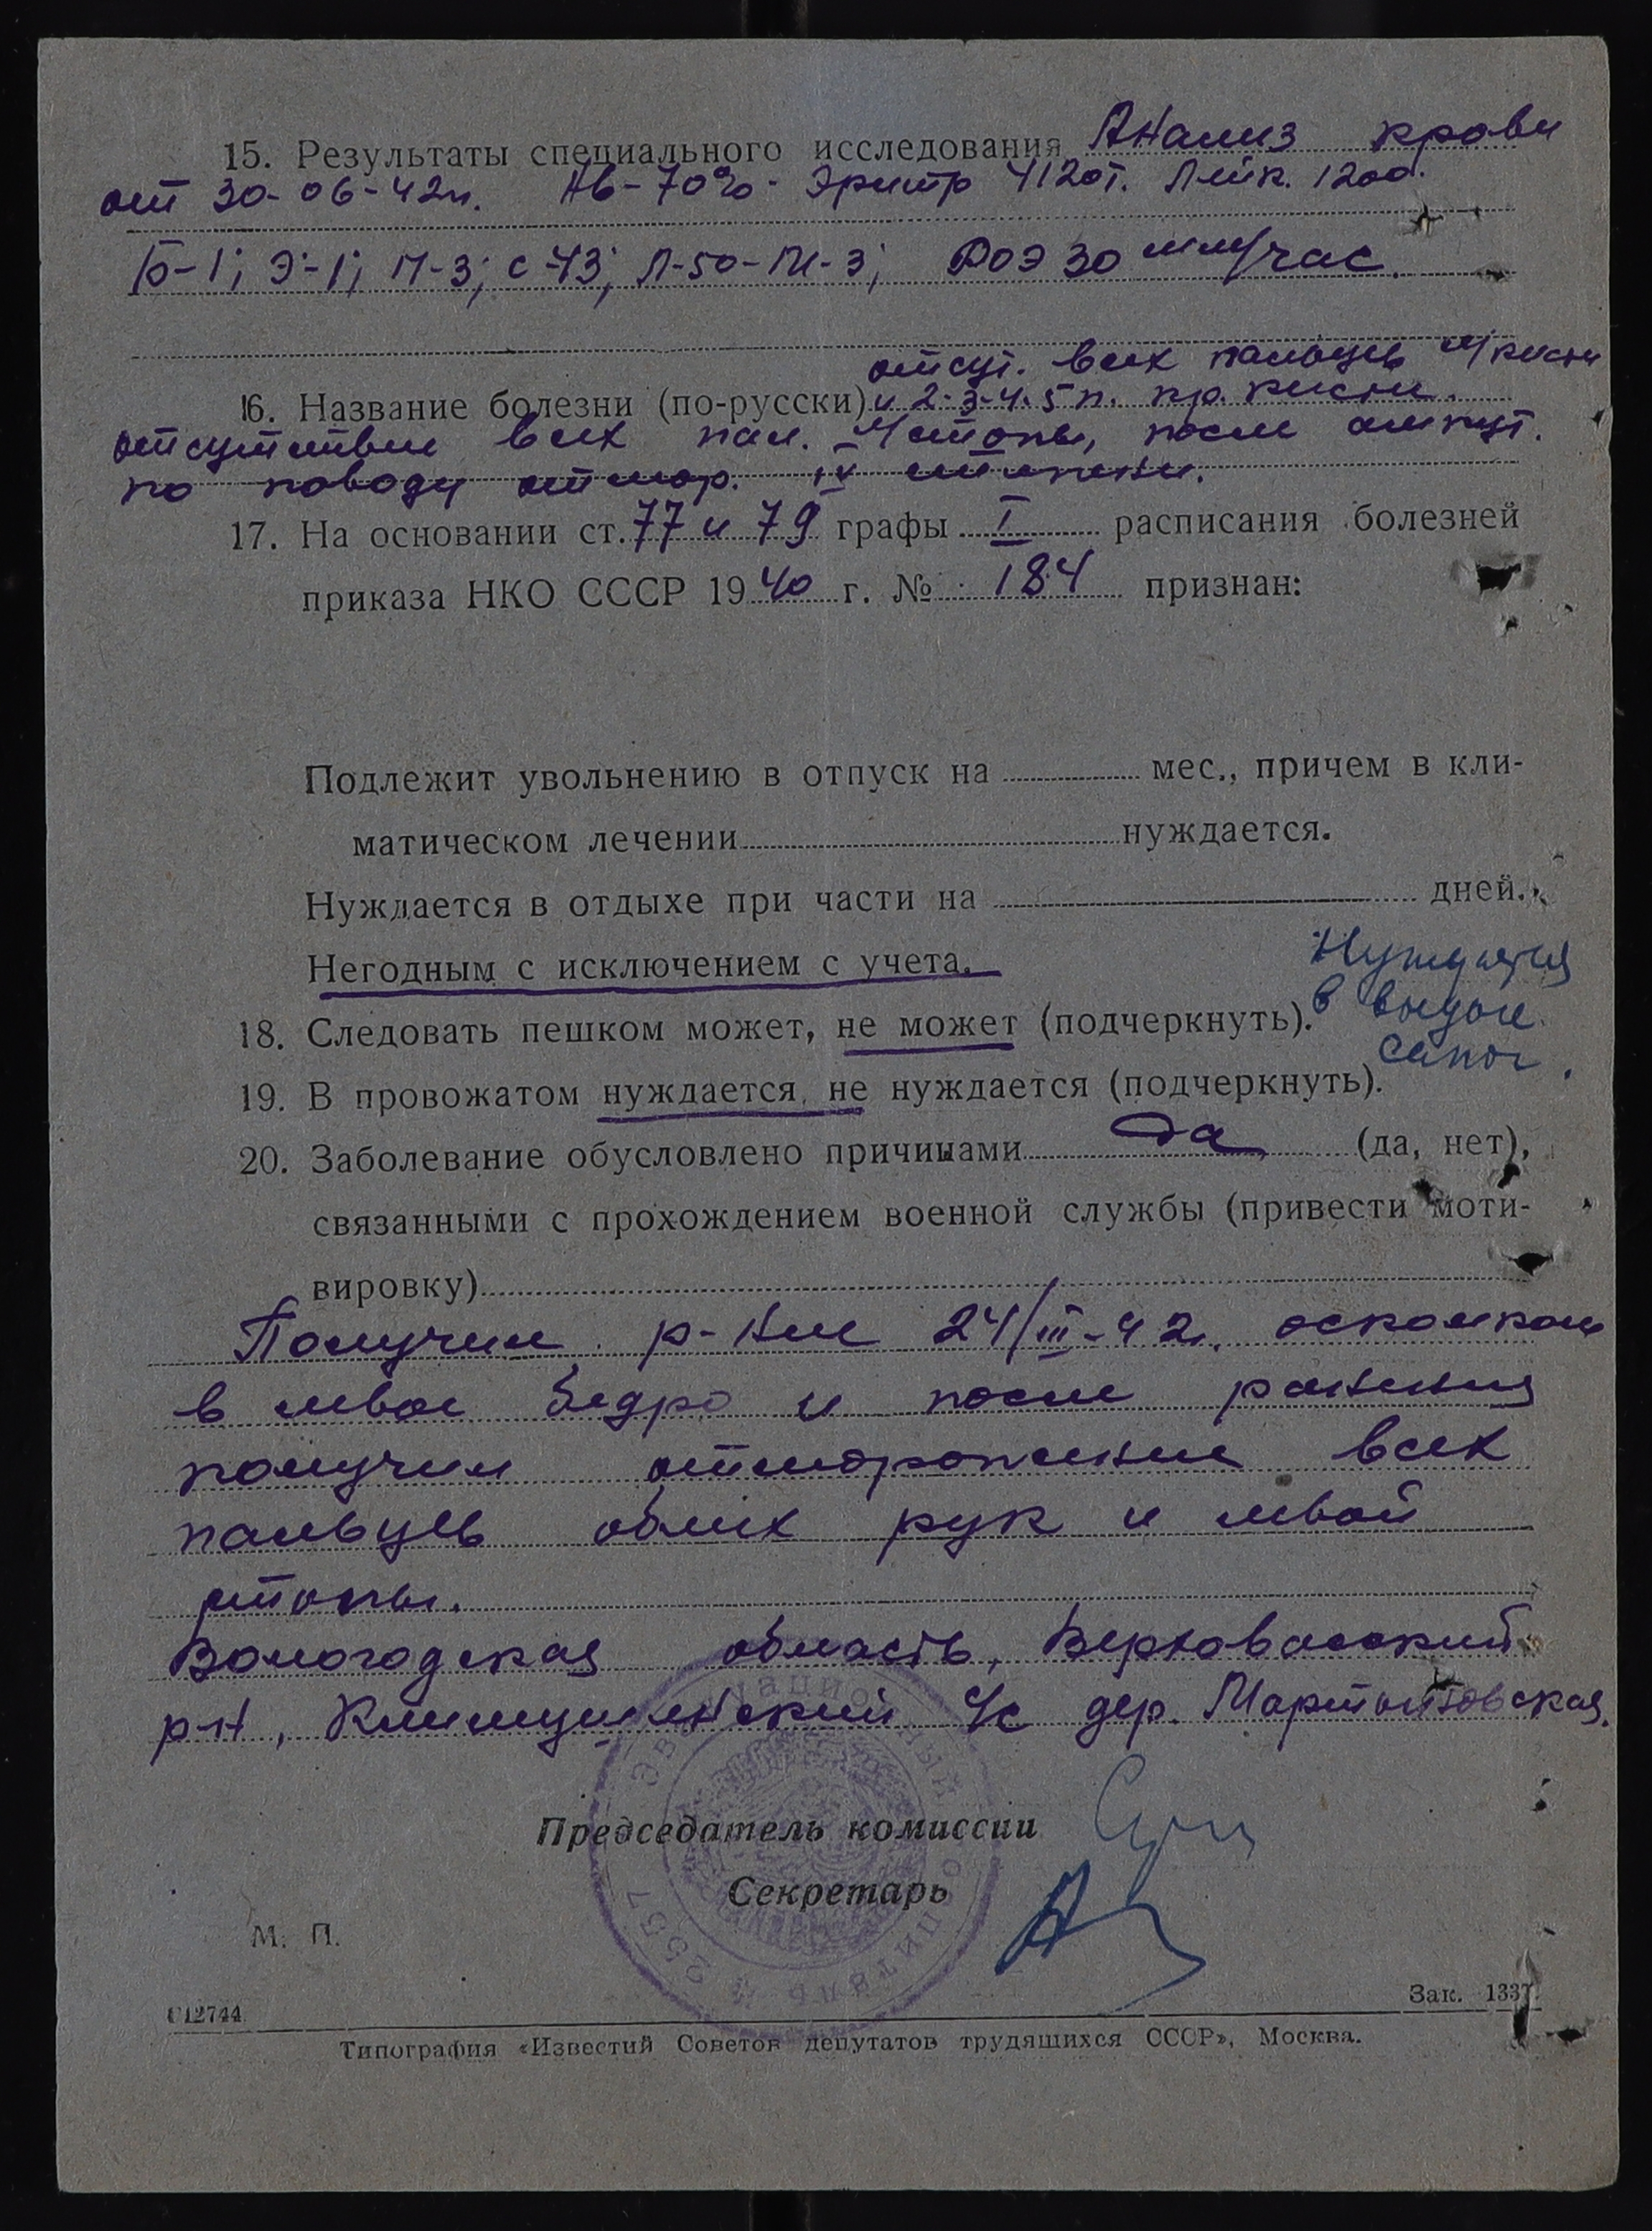 15. Результаты специального исследования Анализ крови
от 30-06-42г. Hb-70% Эритр 4120т. Лейк. 1200.
Б-1; Э-1; П-3; С-43; Л-50-М-3; РОЭ 30 мм/час.
отсут. всех пальцев л/кисти
16. Название болезни (по-русски) и 2-3-4-5 п. пр. кисти.
отсутствие всех пал. л/стопы, после ампут.
по поводу отмор. IV степени.
17. На основании ст. 77 и 79 графы I расписания болезней
приказа НКО СССР 1940 г. № 184 признан:
Подлежит увольнению в отпуск на мес., причем в кли-
матическом лечении нуждается.
Нуждается в отдыхе при части на дней.
Негодным с исключением с учета.
Нуждается
18. Следовать пешком может, не может (подчеркнуть). в выдаче
сапог.
19. В провожатом нуждается, не нуждается (подчеркнуть).
20. Заболевание обусловлено причинами да (да, нет),
связанными с прохождением военной службы (привести моти-
вировку)
Получил р-ние 24/III-42г. осколком
в левое бедро и после ранения
получил отморожение всех
пальцев обеих рук и левой
стопы.
Вологодская область, Верховажский
р-н, Климушинский с/с дер. Мартыновская.
Эвакуационный госпиталь № 2537
Председатель комиссии
Секретарь
М. П.
С12744 Зак. 1337.
Типография «Известий Советов депутатов трудящихся СССР», Москва.